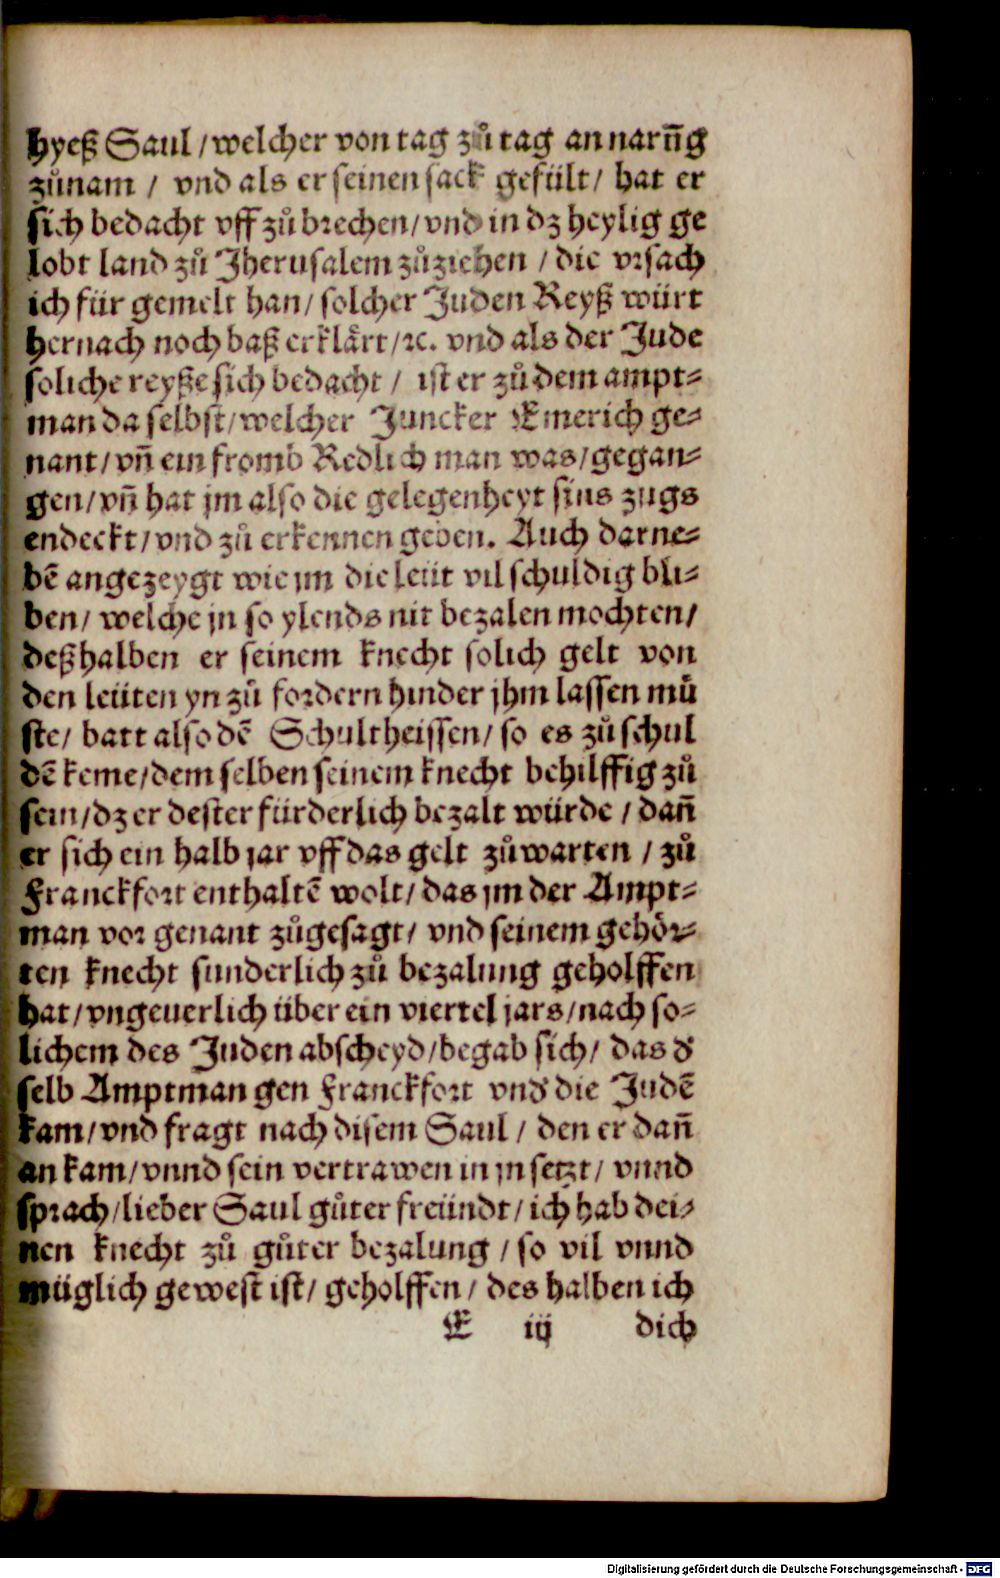 hyeß Saul /welcher von tag zů tag an narūg
zůnam / vnd als er seinen sack gefült/ hat er
sich bedacht vff zů brechen/vnd in dz heylig ge
lobt land zů Jherusalem zůziehen /die vrsach
ich für gemelt han/ solcher Juden Reyß würt
hernach noch baß erklärt/ꝛc. vnd als der Jude
soliche reyße sich bedacht / ist er zů dem ampt⸗
man da selbst/welcher Juncker Emerich ge⸗
nant/vñ ein fromb Redlich man was/gegan⸗
gen/vñ hat jm also die gelegenheyt sins zugs
endeckt/vnd zů erkennen geben. Auch darne⸗
bē angezeygt wie jm die leüt vil schuldig bli⸗
ben/ welche jn so ylends nit bezalen mochten/
deßhalben er seinem knecht solich gelt von
den leüten yn zů fordern hinder jhm lassen mů
ste/ batt also dē Schultheissen/ so es zů schul
dē keme/dem selben seinem knecht behilffig zů
sein/dz er dester fürderlich bezalt würde / dañ
er sich ein halb jar vff das gelt zůwarten / zů
Franckfort enthaltē wolt/das jm der Ampt⸗
man vor genant zůgesagt/ vnd seinem gehör⸗
ten knecht sunderlich zů bezalung geholffen
hat/vngeuerlich über ein viertel jars/nach so⸗
lichem des Juden abscheyd/begab sich/ das d̕
selb Amptman gen Franckfort vnd̕ die Judē
kam/vnd fragt nach disem Saul / den er dañ
an kam/vnnd sein vertrawen in jn setzt/ vnnd
sprach/lieber Saul gůter freündt/ich hab dei⸗
nen knecht zů gůter bezalung /so vil vnnd
müglich gewest ist/ geholffen/ des halben ich
E iij dich
Digitalisierung gefördert durch die Deutsche Forschungsgemeinschaft - DFG